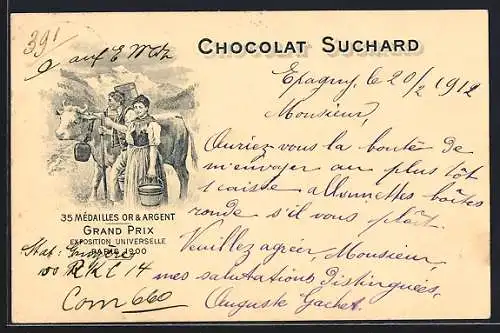 391
CHOCOLAT SUCHARD
Epagny, le 20/2 1912
Monsieur,
Auriez-vous la bonté de
m'envoyer au plus tôt
1 caisse allumettes boîtes
ronde s'il vous plaît.
Veuillez agréer, Monsieur,
mes salutations distinguées,
Auguste Gachet.
35 MÉDAILLES OR & ARGENT
GRAND PRIX
EXPOSITION UNIVERSELLE
PARIS 1900
Stat: Gruyère
14
Com 660